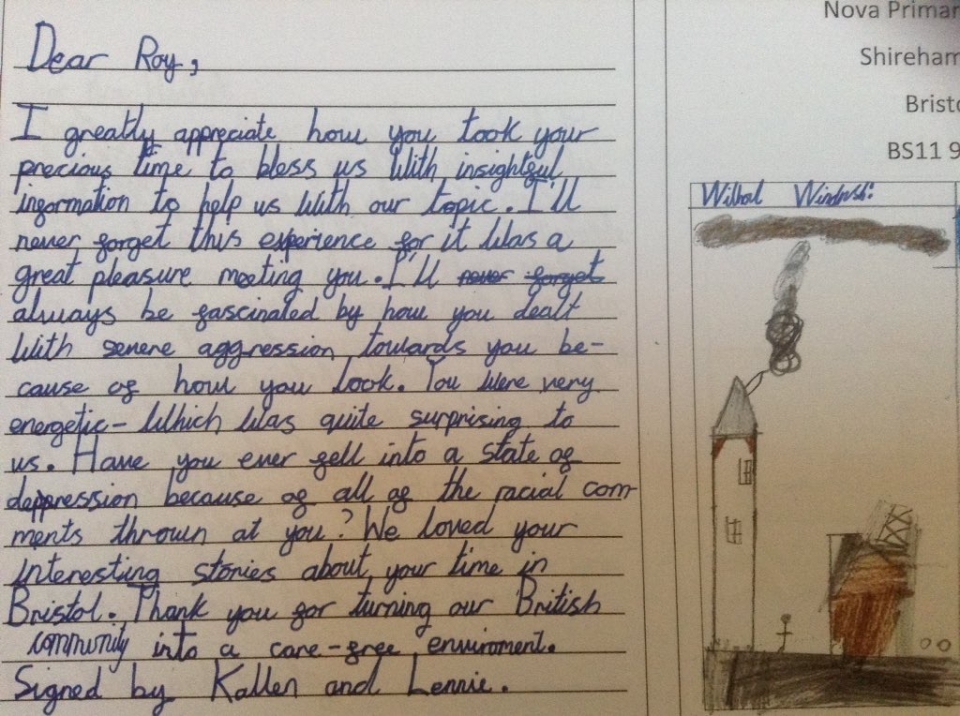 Dear Roy,
I greatly appreciate how you took your
precious time to bless us with insightful
information to help us with our topic. I'll
never forget this experience for it was a
great pleasure meeting you. I'll never forget
always be fascinated by how you dealt
with severe aggression towards you be-
cause of how you look. You were very
energetic- which was quite surprising to
us. Have you ever fell into a state of
deppression because of all of the racial com-
ments thrown at you? We loved your
interesting stories about your time in
Bristol. Thank you for turning our British
community into a care-free enviroment.
Signed by Kallen and Lennie.
Nova Primar
Shireham
Bristo
BS11 9